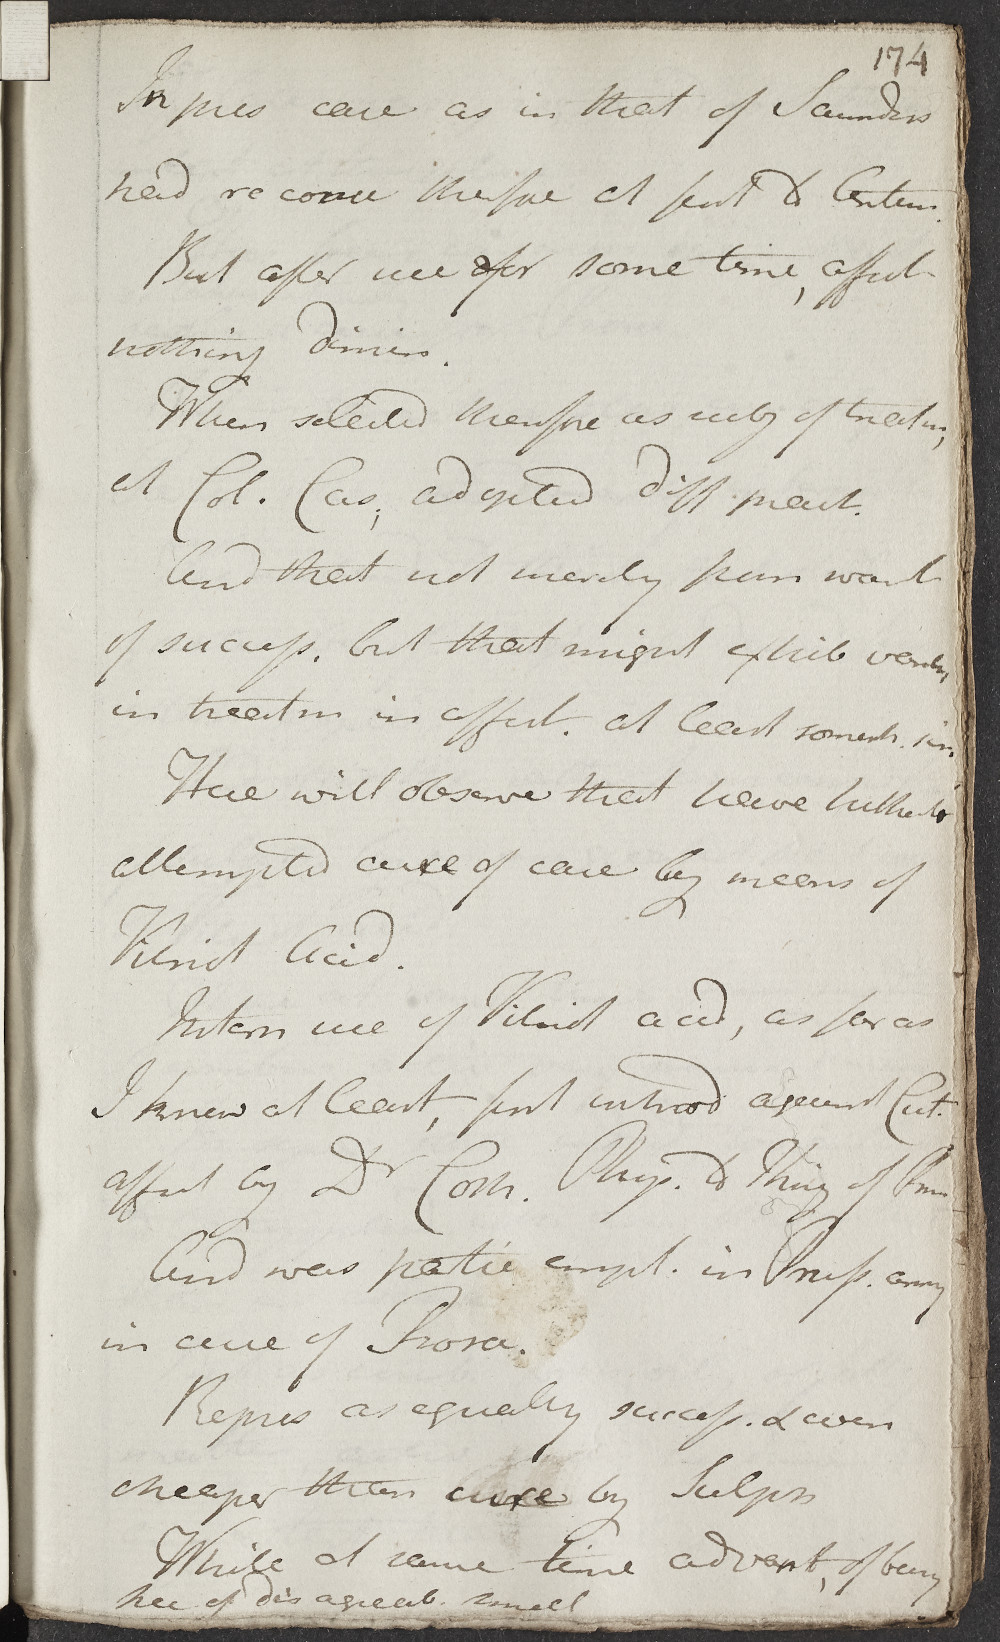 174
In pres case as in that of Saunders
had recourse therfore at first to Antim.
But after use for some time, affect
nothing dimin.
When selected therefore as subj of treatm,
at Col. Cas, adopted diff. pract.
And that not merely from want
of success. but that might exhib variety
in treatm in affect. at least somewh. sim
Here will observe that have hitherto
attempted cure of case by means of
Vitriol Acid.
Intern use of Vitriol acid, as far as
I know at least, first introd against Cut.
affect by Dr Coth. Phys. to King of Prus
And was partic empl. in Pruss. army
in cure of Psora.
Repres as equally success. & even
cheaper than cure by Sulph
While at same time advant, of being
free of disagreeab. smell